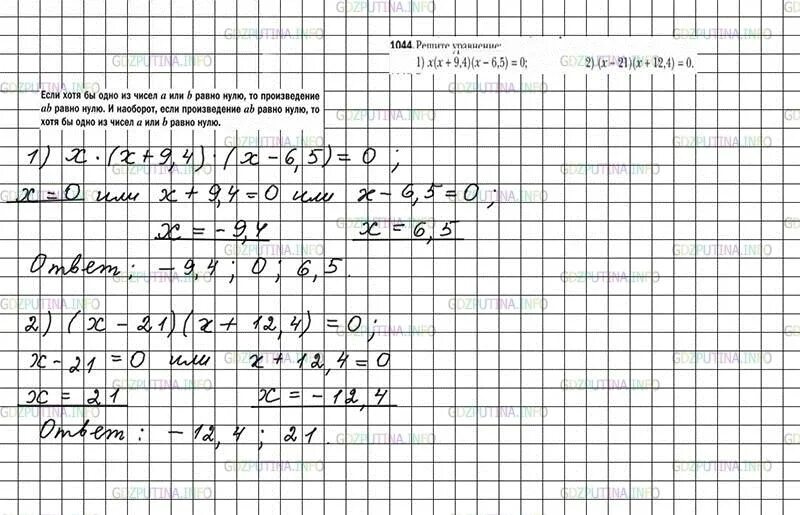 1044. Решите уравнение:
1) x(x + 9,4)(x − 6,5) = 0; 2) (x − 21)(x + 12,4) = 0.
Если хотя бы одно из чисел a или b равно нулю, то произведение
ab равно нулю. И наоборот, если произведение ab равно нулю, то
хотя бы одно из чисел a или b равно нулю.
1) x · (x + 9,4) · (x − 6,5) = 0 ;
x = 0 или x + 9,4 = 0 или x − 6,5 = 0 ;
x = − 9,4 x = 6,5
Ответ : − 9,4 ; 0 ; 6,5 .
2) (x − 21)(x + 12,4) = 0;
x − 21 = 0 или x + 12,4 = 0
x = 21 x = − 12,4
Ответ : − 12,4 ; 21 .
GDZPUTINA.INFO